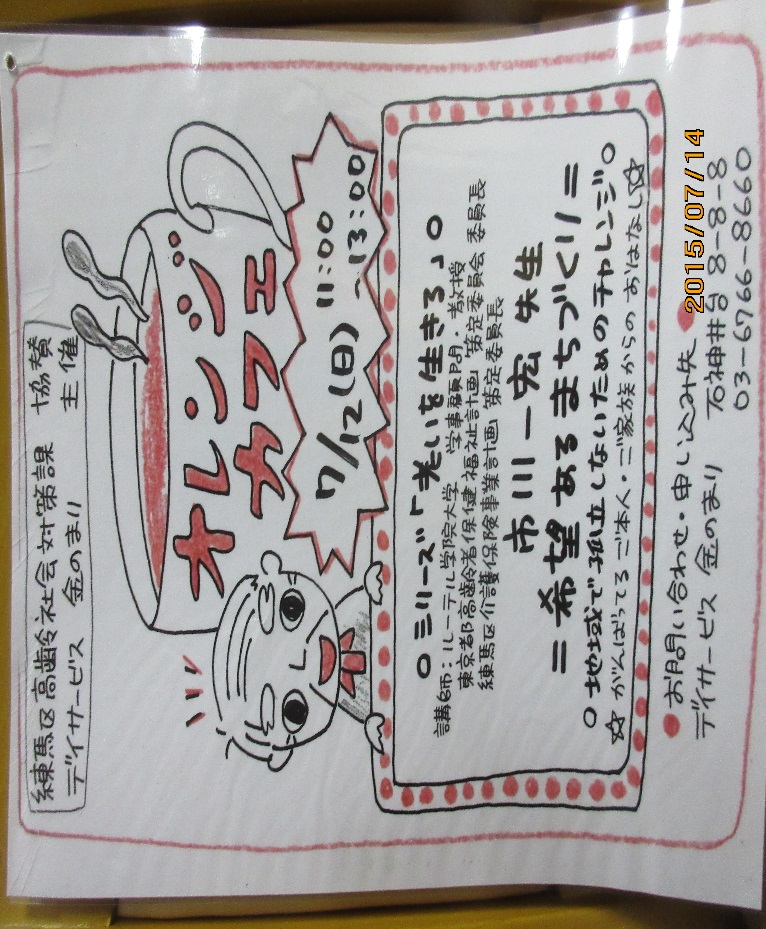 練馬区高齢社会対策課 協賛
デイサービス 金のまり 主催
オレンジ
カフェ
7/12(日) 11:00
~13:00
○シリーズ「老いを生きる」○
講師:ルーテル学院大学 学事顧問・教授
東京都高齢者保健福祉計画 策定委員会 委員長
練馬区介護保険事業計画 策定委員長
市川一宏 先生
=希望あるまちづくり=
○地域で孤立しないためのチャレンジ○
☆がんばってる ご本人・ご家族からの おはなし☆
●お問い合わせ・申し込み先●
デイサービス 金のまり 石神井台8-8-8
03-6766-8660
2015/07/14